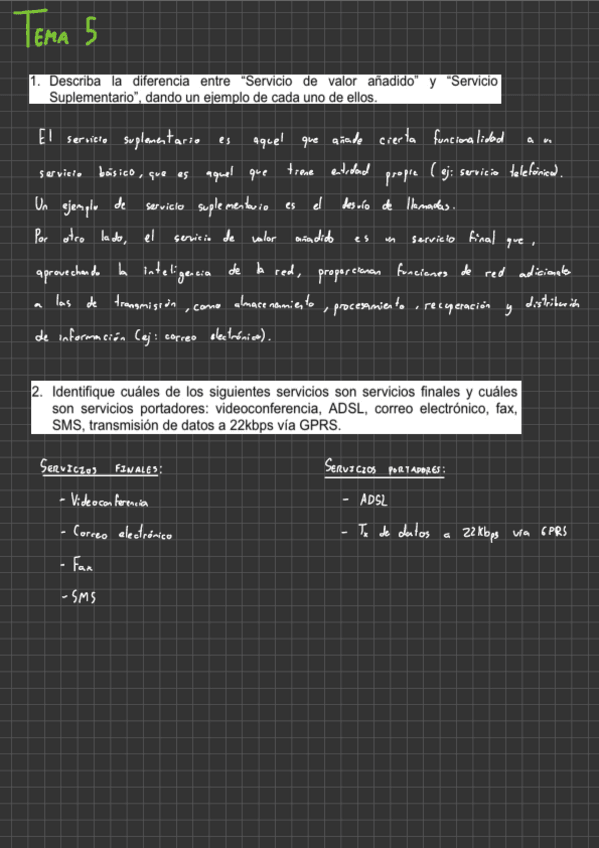 TEMA 5
1. Describa la diferencia entre “Servicio de valor añadido” y “Servicio
Suplementario”, dando un ejemplo de cada uno de ellos.
El servicio suplementario es aquel que añade cierta funcionalidad a un
servicio básico, que es aquel que tiene entidad propia (ej: servicio telefónico).
Un ejemplo de servicio suplementario es el desvío de llamadas.
Por otro lado, el servicio de valor añadido es un servicio final que,
aprovechando la inteligencia de la red, proporcionan funciones de red adicionales
a las de transmisión, como almacenamiento, procesamiento, recuperación y distribución
de información (ej: correo electrónico).
2. Identifique cuáles de los siguientes servicios son servicios finales y cuáles
son servicios portadores: videoconferencia, ADSL, correo electrónico, fax,
SMS, transmisión de datos a 22kbps vía GPRS.
SERVICIOS FINALES:
- Videoconferencia
- Correo electrónico
- Fax
- SMS
SERVICIOS PORTADORES:
- ADSL
- Tx de datos a 22kbps vía GPRS